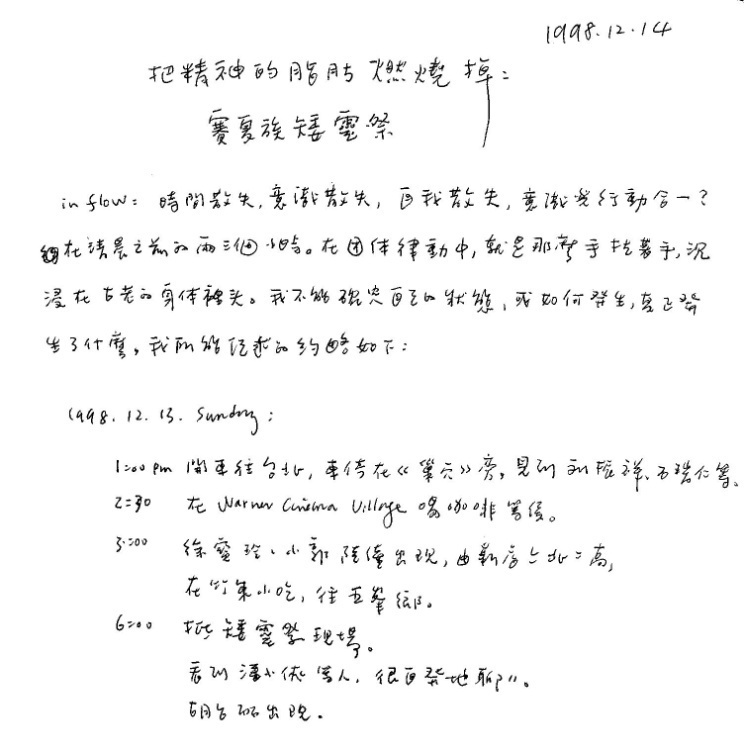 1998.12.14
把精神的脂肪燃燒掉：
賽夏族矮靈祭
in flow：時間散失，意識散失，自我散失，意識與行動合一？
在清晨之前的兩三個小時。在团体律動中，就是那麼手拉著手，沉
浸在古老的身体裡头。我不能確定自己的狀態，或如何發生，真正發
生了什麼，我所能記求的約略如下：
1998.12.13. Sunday：
1:00 pm 開車往台北，車停在《巢穴》旁，見到劉振祥、石瑞仁等。
2:30 在 Warner Cinema Village 喝咖啡等候。
5:00 徐寶玲、小郭陸續出現，由新店上北二高，
在竹東小吃，往五峯鄉。
6:00 抵矮靈祭現場。
看到潘小俠等人，很自發地聊"。
胡台麗出現。